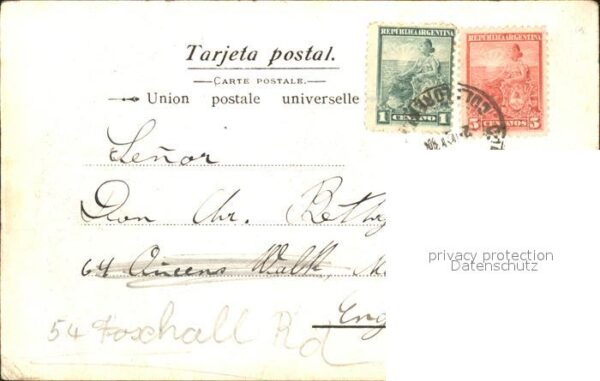 Tarjeta postal.
CARTE POSTALE.
Union postale universelle
REPÚBLICA ARGENTINA
1 CENTAVO 1
REPÚBLICA ARGENTINA
5 CENTAVOS 5
Señor
Don Chr. Beth
64 Queens Walk,
Eng
54 Foxhall Rd
privacy protection
Datenschutz